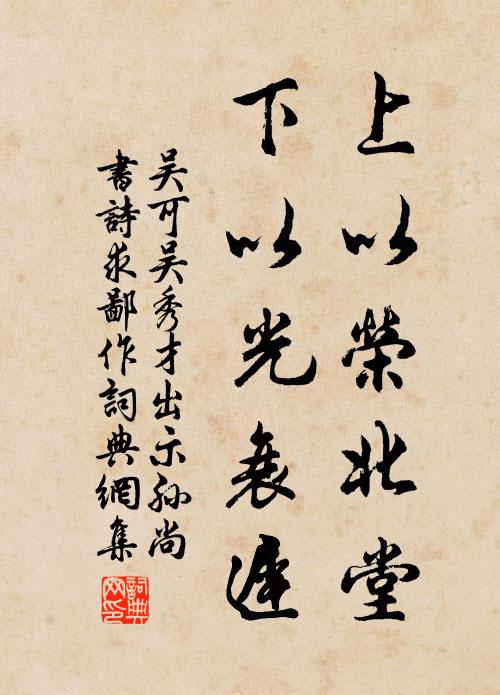 上以榮北堂
下以光衰遲
吳可吳秀才出示孫尚
書詩求鄙作詞典網集
詞典
网印